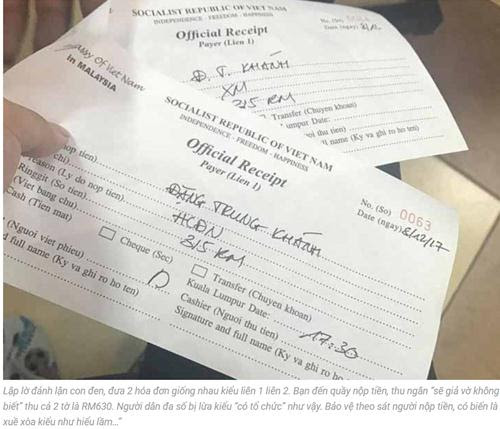 SOCIALIST REPUBLIC OF VIET NAM
INDEPENDENCE - FREEDOM - HAPPINESS
Official Receipt
Payer (Lien 1)
No. (So)
Date (ngay)
Đ. T. KHÁNH
XM
315 RM
Transfer (Chuyen khoan)
umpur Date:
oi thu tien)
l name (Ky va ghi ro ho ten)
assy Of Viet Nam
in MALAYSIA
SOCIALIST REPUBLIC OF VIET NAM
INDEPENDENCE - FREEDOM - HAPPINESS
Official Receipt
Payer (Lien 1)
No. (So) 0063
Date (ngay) 8/12/17
nop tien)
chi)
eason (Ly do nop tien)
Ringgit (So tien)
(Viet bang chu)
Cash (Tien mat)
ĐẶNG TRUNG KHÁNH
HCĐN
315 RM
Cheque (Sec)
Transfer (Chuyen khoan)
(Nguoi viet phieu)
Kuala Lumpur Date:
17:30
d full name (Ky va ghi ro ho ten)
Cashier (Nguoi thu tien)
Signature and full name (Ky va ghi ro ho ten)
Lập lờ đánh lận con đen, đưa 2 hóa đơn giống nhau kiểu liên 1 liên 2. Bạn đến quầy nộp tiền, thu ngân “sẽ giả vờ không
biết” thu cả 2 tờ là RM630. Người dân đa số bị lừa kiểu “có tổ chức” như vậy. Bảo vệ theo sát người nộp tiền, có biến là
xuề xòa kiểu như hiểu lầm…”